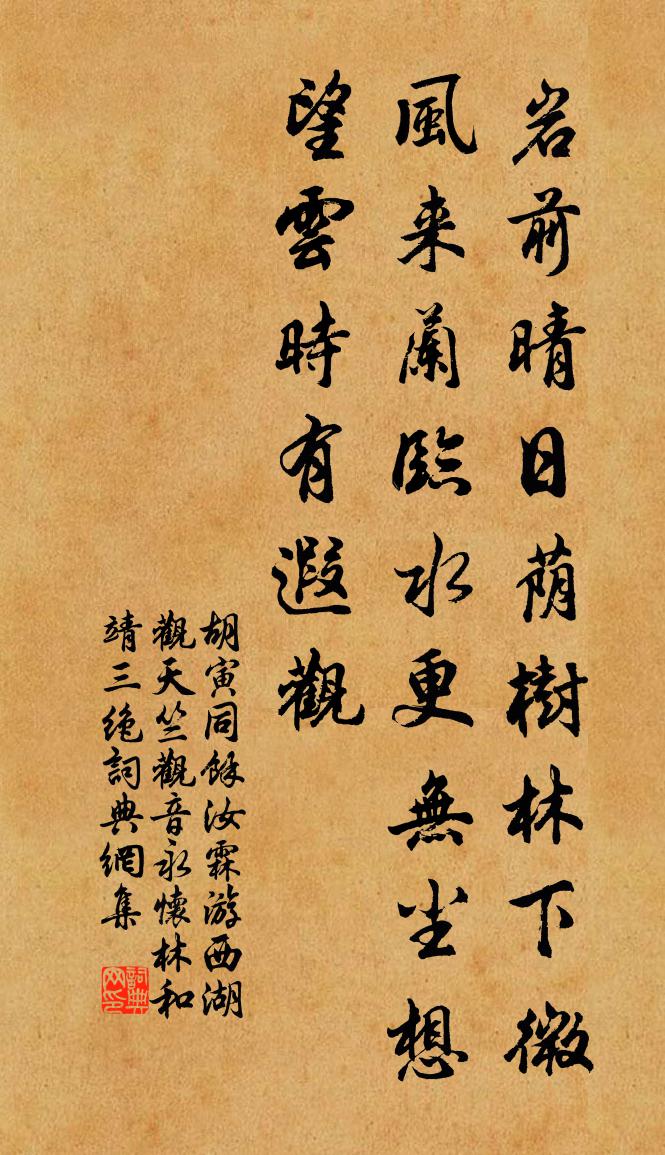 岩前晴日荫樹林下微
風来蘭臨水更無坐想
望雲時有遐觀
胡寅同餘汝霖游西湖
觀天竺觀音永懷林和
靖三绝詞典網集
詞典网印